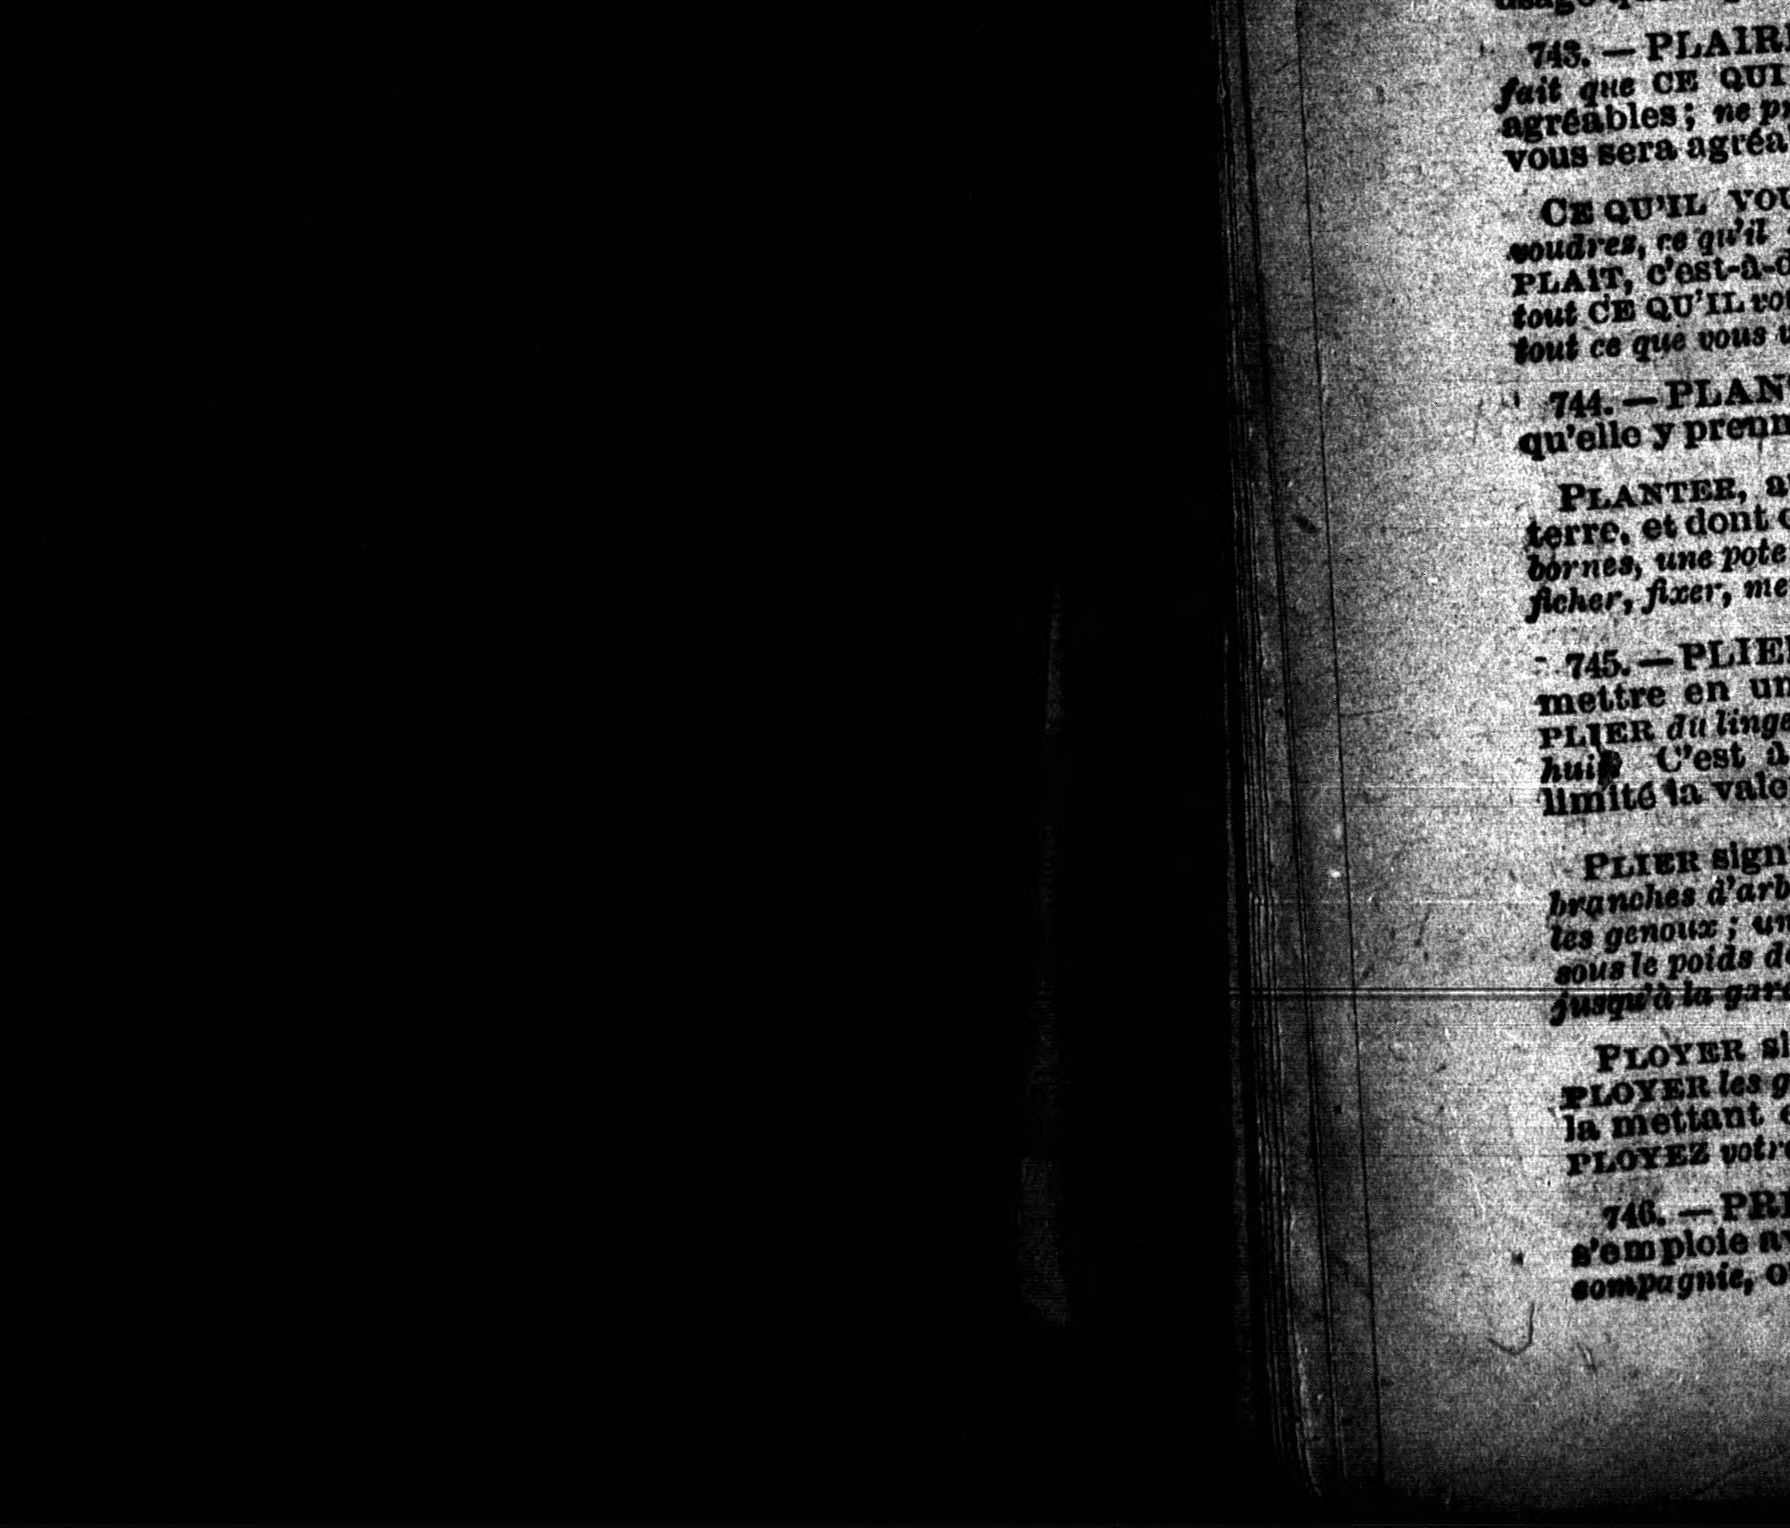 743. — PLAIR
fait que CE QUI
agréables; ne p
vous sera agréa
CE QU'IL VOU
voudrez, ce qu'il
PLAIT, c'est-à-d
tout CE QU'IL vo
tout ce que vous
744. — PLAN
qu'elle y prenn
PLANTER, a
terre, et dont
bornes, une pote
ficher, fixer, me
745. — PLIE
mettre en un
PLIER du linge
C'est à
limité la vale
PLIER sign
branches d'arb
les genoux; un
sous le poids d
jusqu'à la gar
PLOYER si
PLOYER les g
la mettant
PLOYEZ votr
746. — PR
s'emploie av
compagnie, o